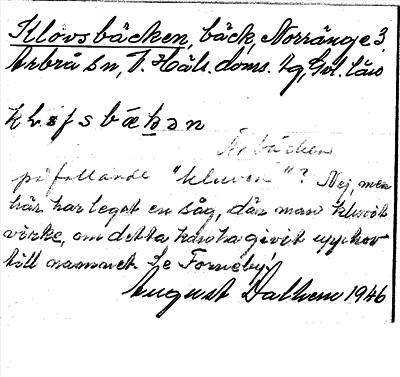 Klovsbäcken, bäck, Norränge 3,
Arbrå sn, V. Häls. doms. tg, Gvl. län
Är bäcken
påfallande "kluven"? Nej, men
här har legat en såg, där man kluvit
virke, om detta kanska givit upphov
till namnet. Se Forneby!
August Dalhem 1946